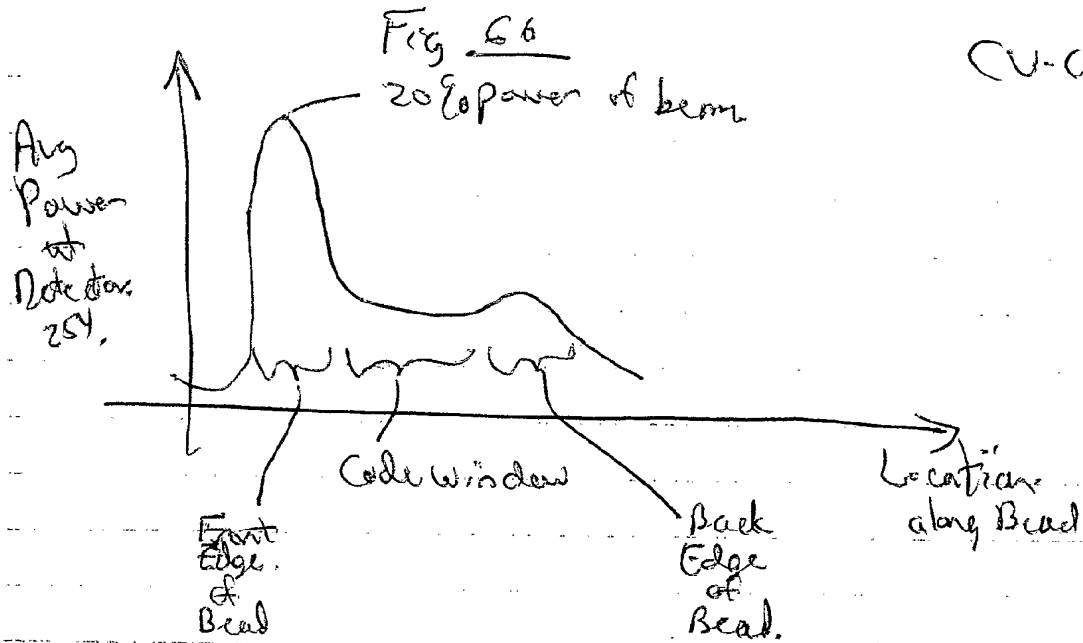 Fig 66
20% power of beam
CV-C
Avg
Power
at
Detector
254.
Code window
Location
along Bead
Front
Edge
of
Bead
Back
Edge
of
Bead.